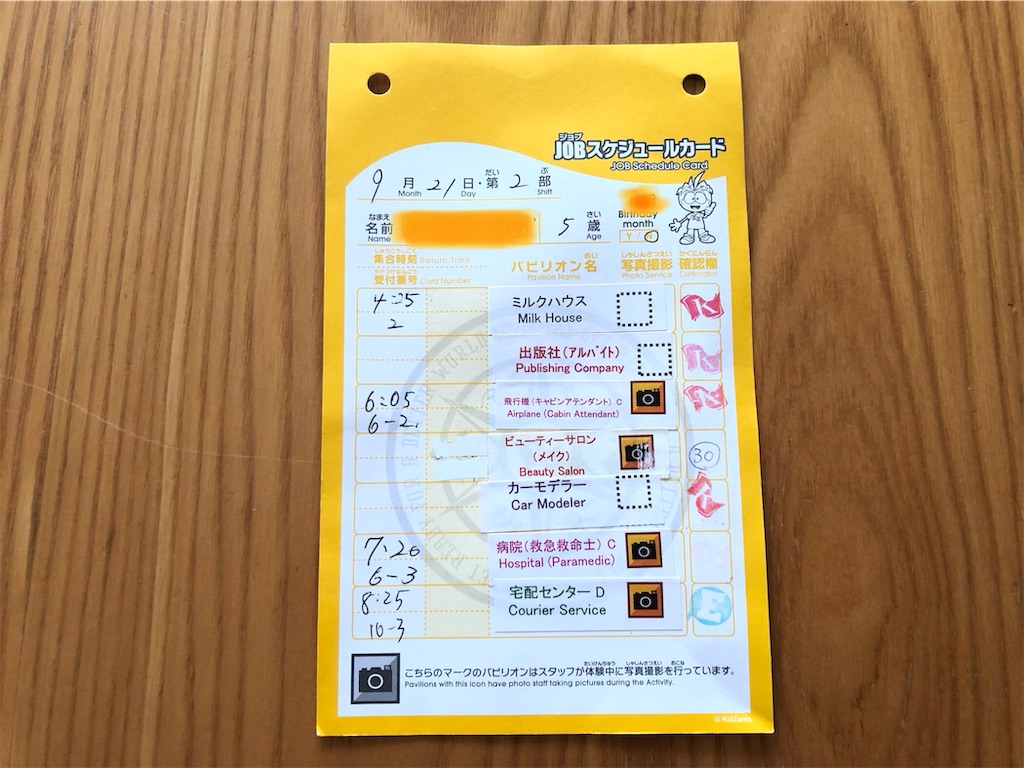 ジョブ
JOBスケジュールカード
JOB Schedule Card
9月21日・第2部
だい ぶ
Month Day Shift
なまえ さい
名前 5歳 Birthday month
Name Age Y / N
しゅうごうじこく
集合時刻 Return Time
うけつけばんごう
受付番号 Card Number
めい
パビリオン名
Pavilion Name
しゃしんさつえい
写真撮影
Photo Service
かくにんらん
確認欄
Confirmation
4:25
2
ミルクハウス
Milk House
K
出版社(アルバイト)
Publishing Company
K
6:05
6-2
飛行機(キャビンアテンダント) C
Airplane (Cabin Attendant)
K
ビューティーサロン
(メイク)
Beauty Salon
30
カーモデラー
Car Modeler
7:20
6-3
病院(救急救命士) C
Hospital (Paramedic)
8:25
10-3
宅配センター D
Courier Service
E
たいけんちゅう しゃしんさつえい おこな
こちらのマークのパビリオンはスタッフが体験中に写真撮影を行っています。
Pavilions with this icon have photo staff taking pictures during the Activity.
© KidZania